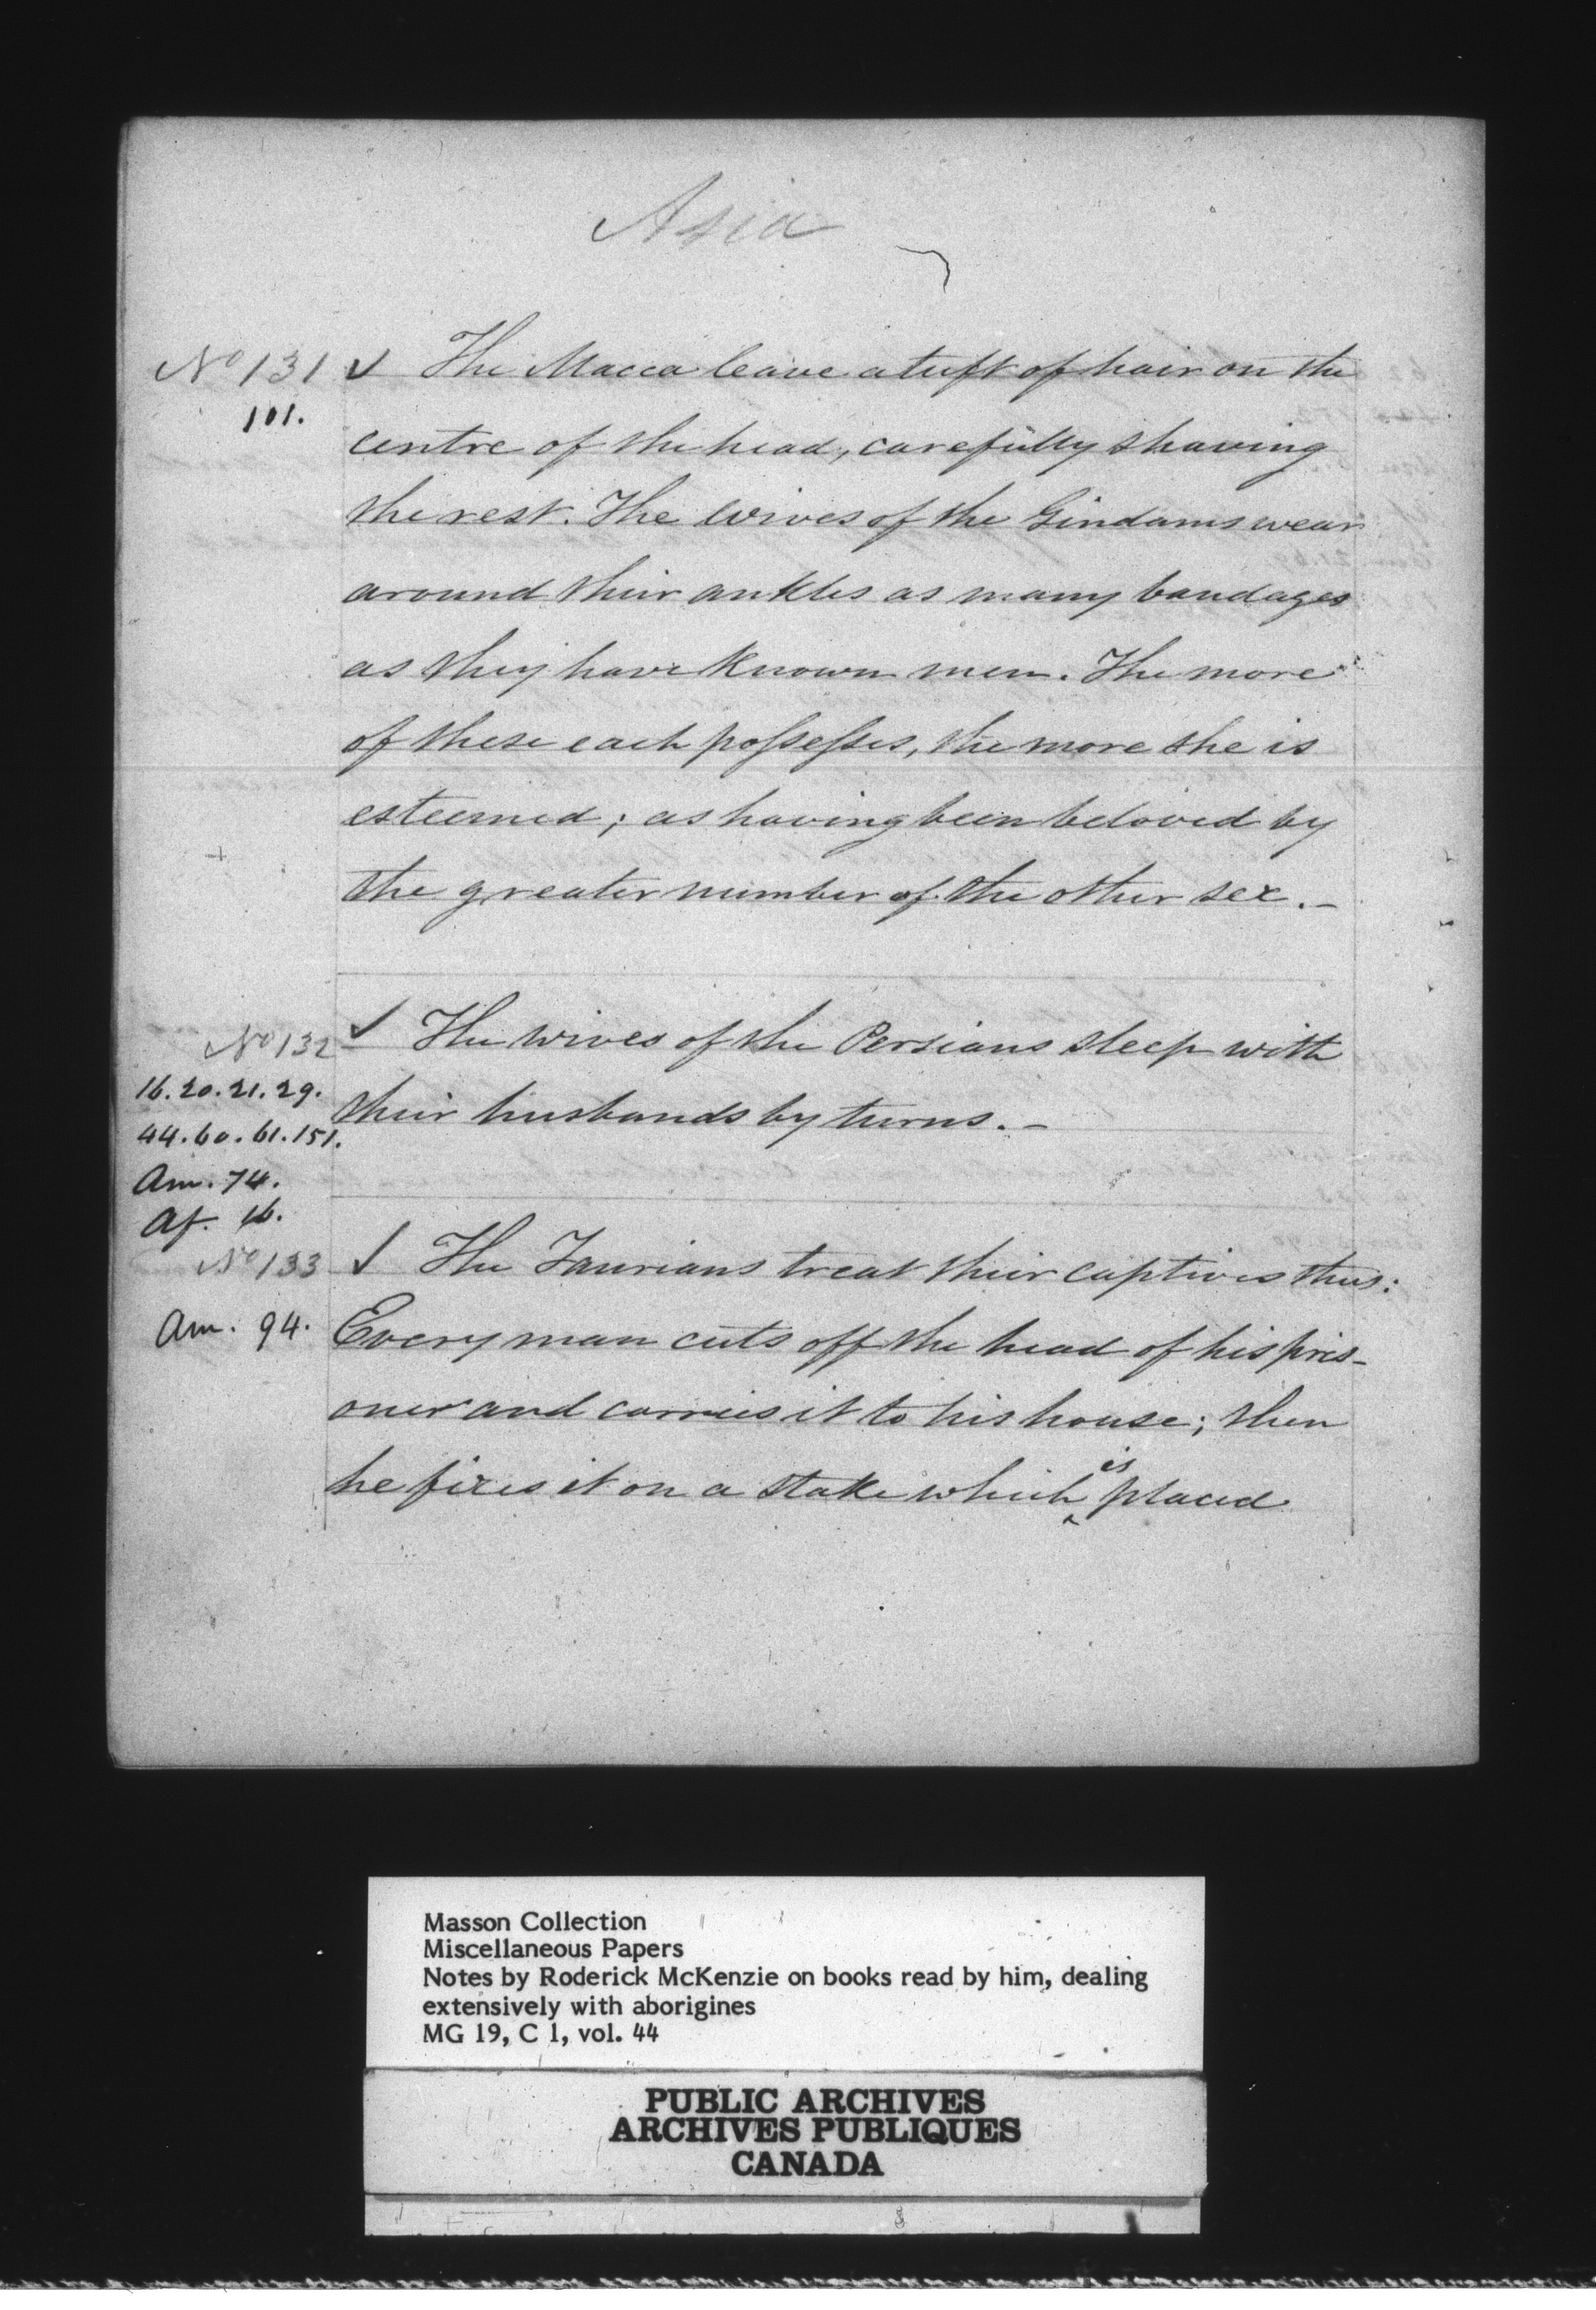 Asia
No 131 ✓ The Macca leave a tuft of hair on the
101.
centre of the head, carefully shaving
the rest. The wives of the Gindams wear
around their ankles as many bandages
as they have known men. The more
of these each possesses, the more she is
esteemed; as having been beloved by
+
the greater number of the other sex.–
No 132 ✓ The wives of the Persians sleep with
16.20.21.29.
their husbands by turns.–
44.60.61.151.
Am. 74.
Af. 16.
No 133 ✓ The Taurians treat their captives thus:
Am. 94. Every man cuts off the head of his pris-
oner and carries it to his house; then
he fixes it on a stake which is placed
Masson Collection
Miscellaneous Papers
Notes by Roderick McKenzie on books read by him, dealing
extensively with aborigines
MG 19, C 1, vol. 44
PUBLIC ARCHIVES
ARCHIVES PUBLIQUES
CANADA